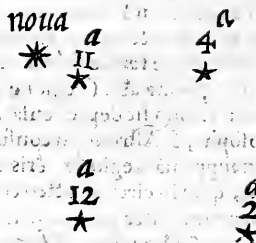 noua
a a
II 4
a
12
a
2